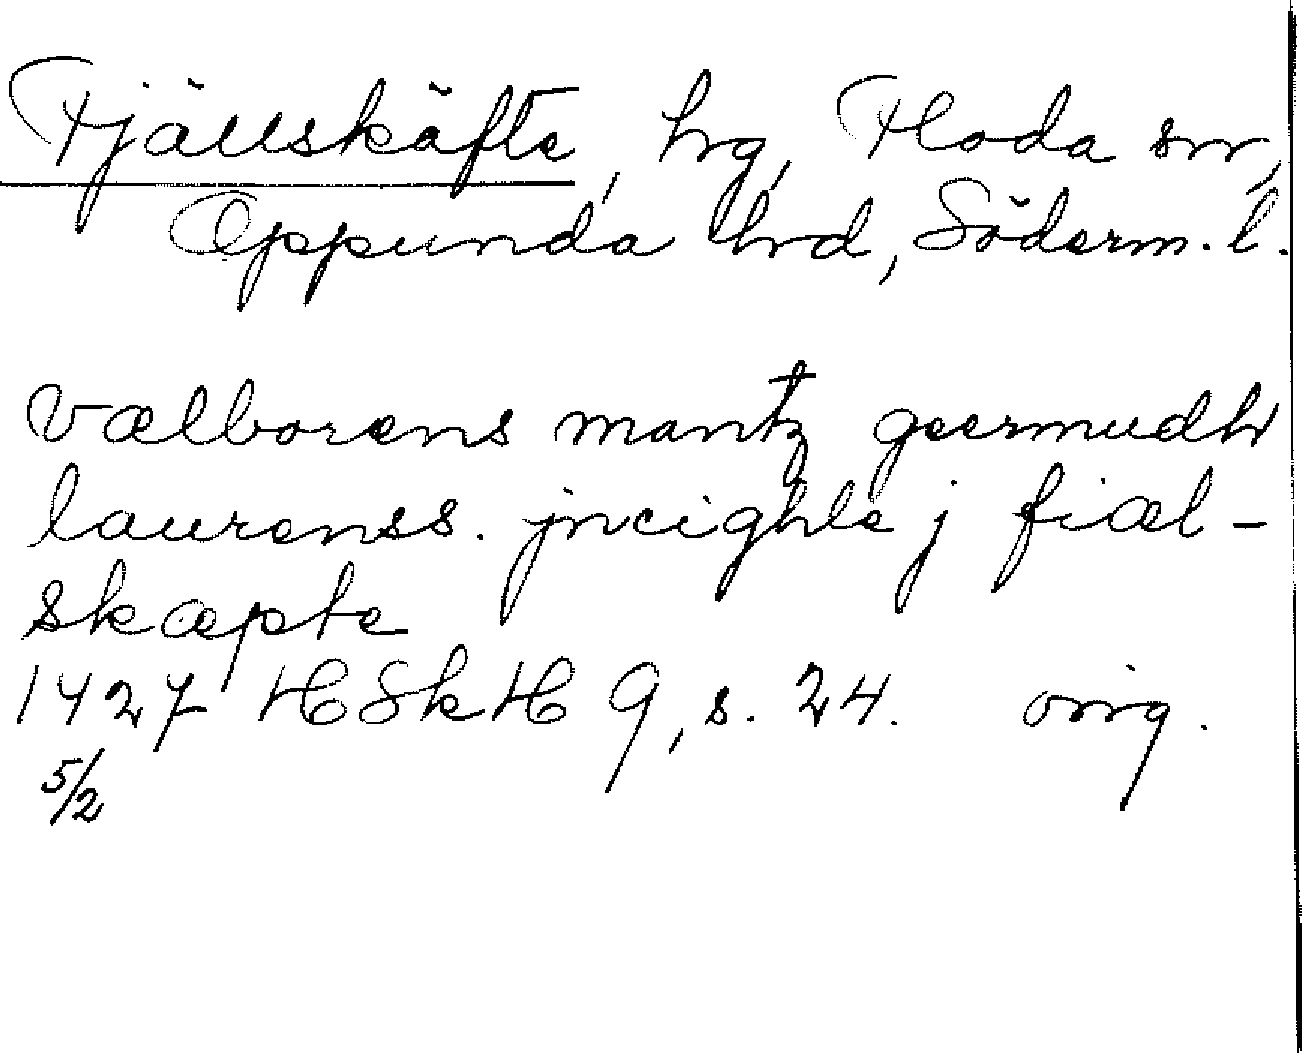 Fjällskäfte, hrg, Floda sn,
Oppunda hrd, Söderm. l.
Vælborens mantz geermudh
laurenss. jncighle j fiæl-
skæpte
1427 HSkH 9, s. 24. orig.
5/2